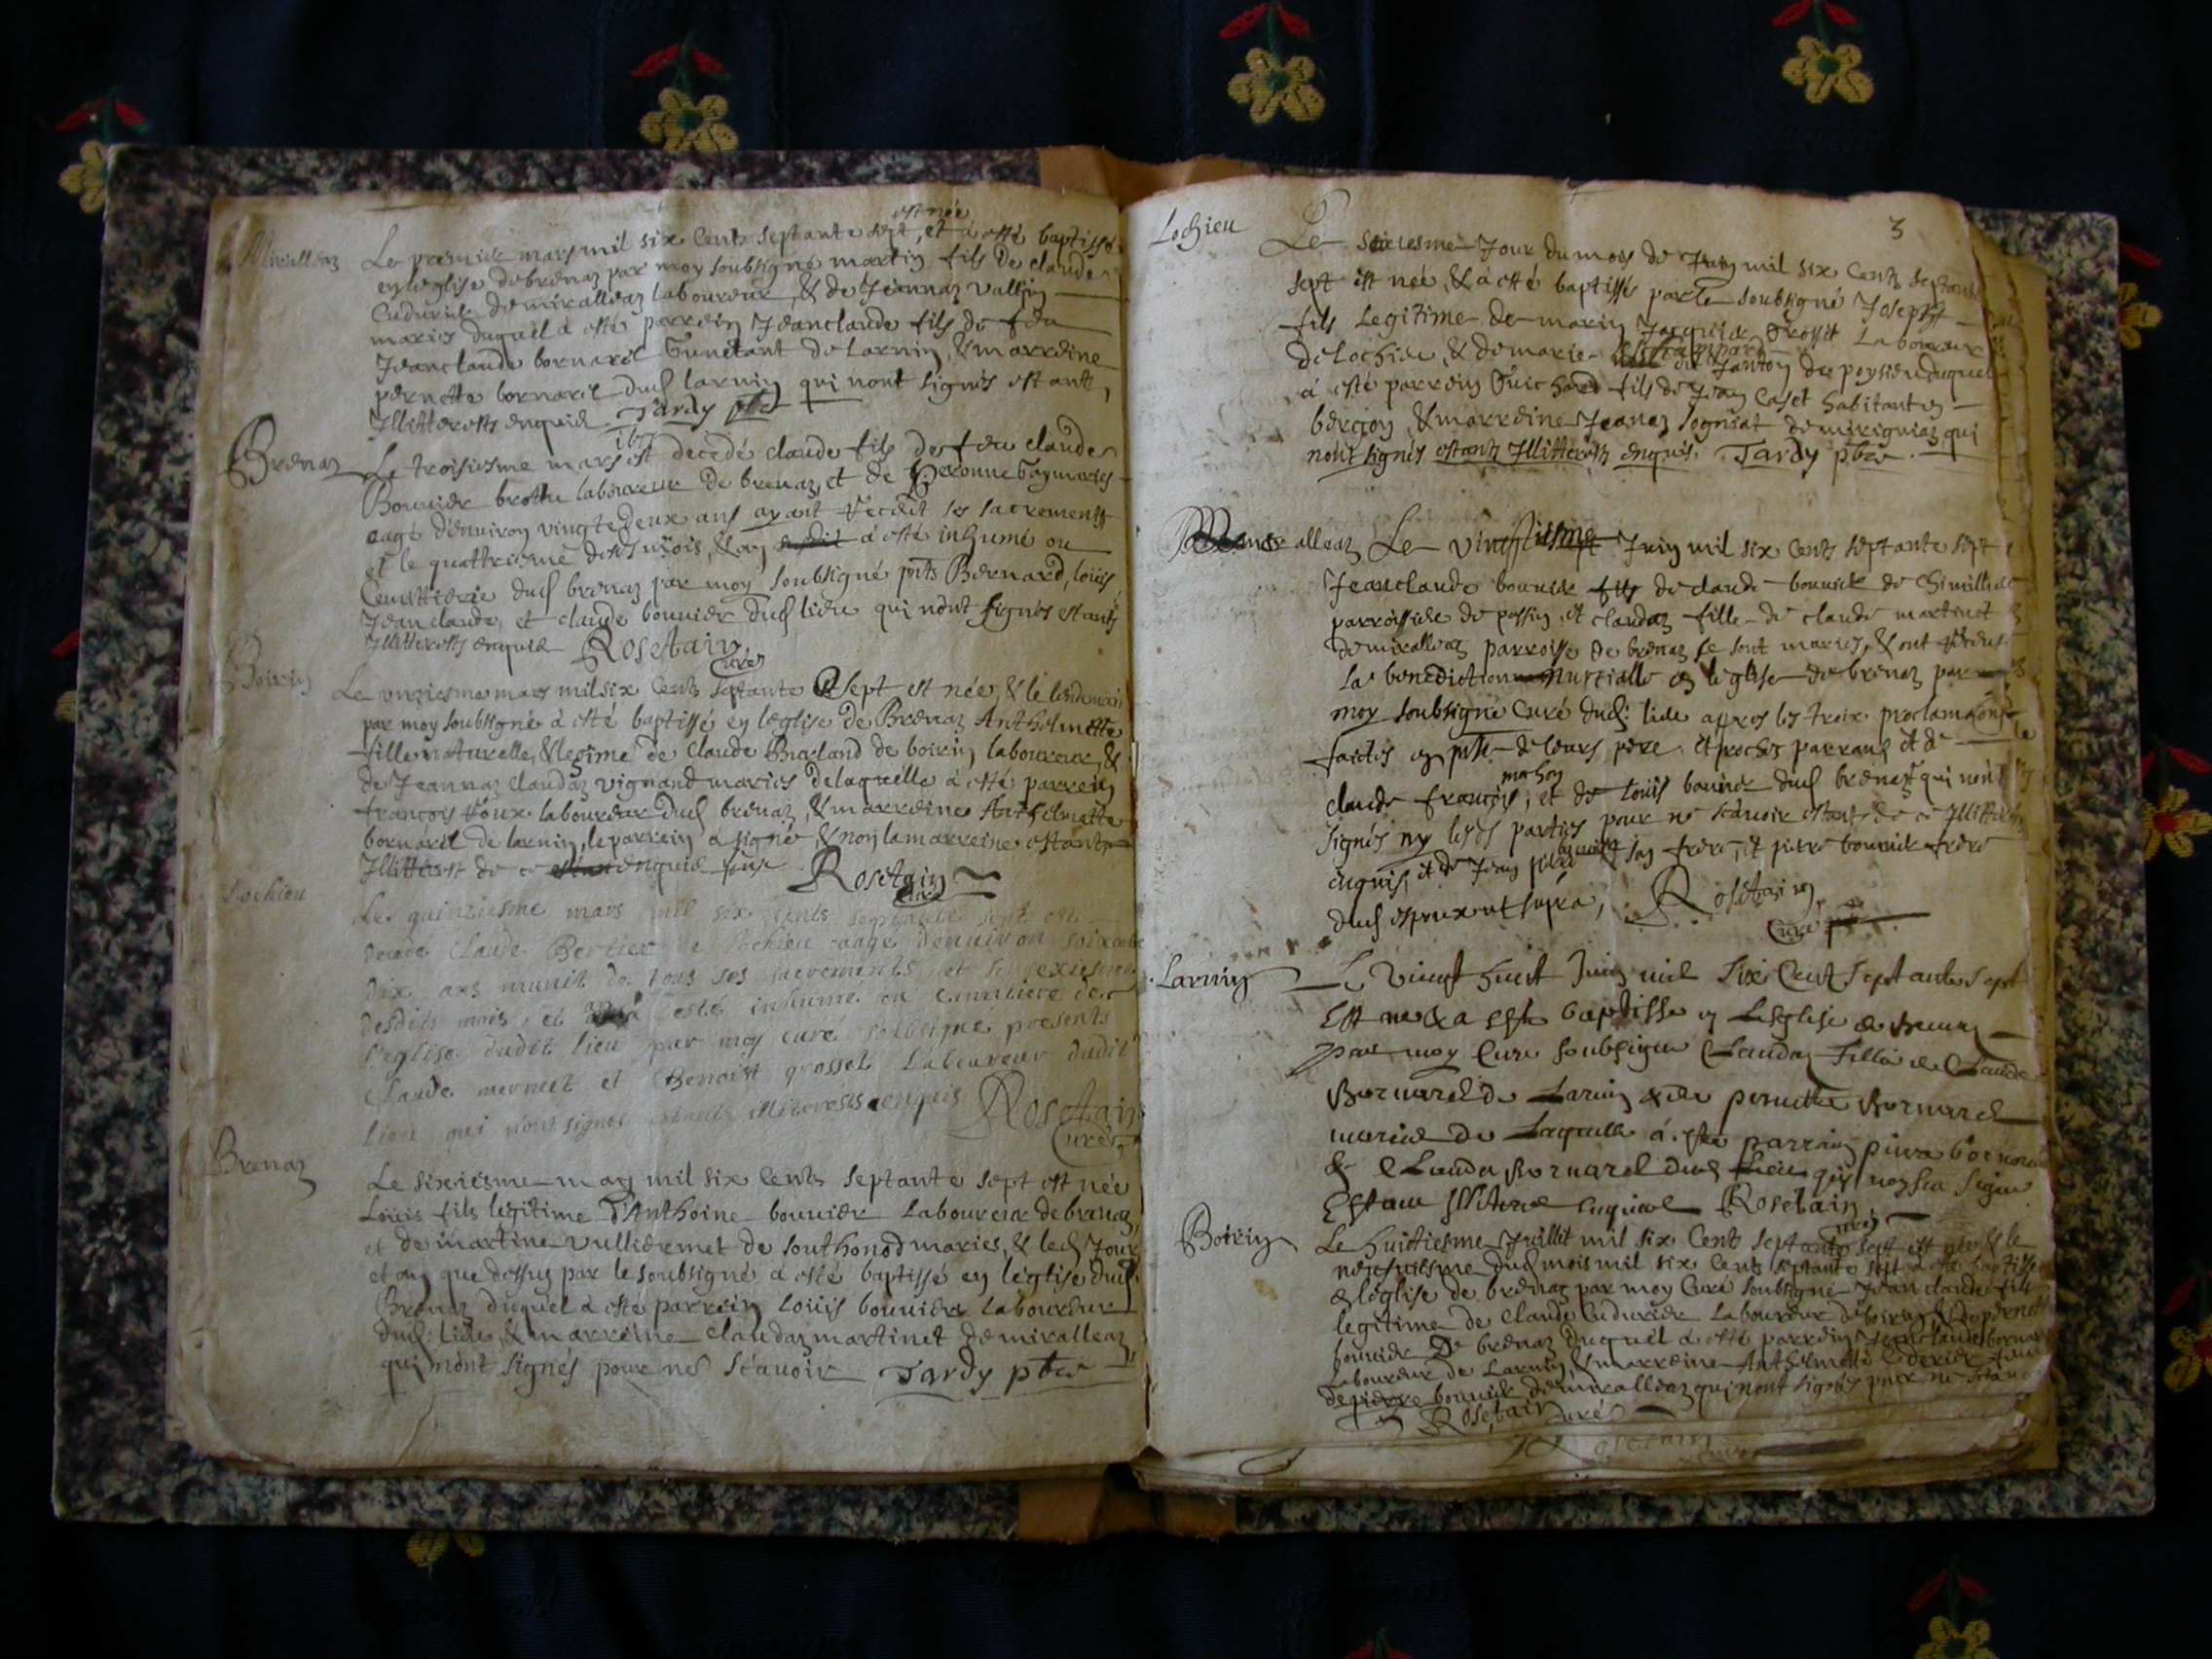 Miralleaz
Le premier mars mil six cents septante sept, est née et a esté baptissé
en leglise de brenaz par moy soubsigné martin fils de claude
Cudurier de miralleaz laboureur, & de Jeannaz vallin
mariés duquel à esté parrein Jeanclaude fils de feu
Jeanclaude bornarel de larnin, & marreine
pernette bornarel dud larnin qui nont signés estants
Illitterests enquis Tardy pbre
Brenaz
Le troisiesme mars est decedé claude fils de feu claude
Bouvier laboureur de brenaz, et de mariés
eagé d'environ vingtedeux ans ayant receüt ses sacrements
et le quattriesme desd mois, & an à esté inhumé au
Cemittiere dud brenaz par moy soubsigné pnts Bernard, loüis,
Jean claude, et claude bouvier dud lieu qui nont signés estants
Illitterests enquis Rosetain
Curé
Boirin
Le unziesme mars mil six Cents septante sept est née, & le lendemain
par moy soubsigné à esté baptissé en leglise de Brenaz Anthelmette
fille naturelle, & legime de claude de boirin laboureur, &
de Jeannaz claudaz vignand mariés delaquelle à esté parrein
francois laboureur dud brenaz, & marreine Anthelmette
bornarel de larnin, le parrein a signé, & non la marreine estant
Illitterest de ce enquise Rosetain
Curé
Lochieu
Le quinziesme mars mil six cents septante sept est
decedé Claude Berlier de lochieu eagé denviron soixante
dix ans munit de tous ses sacrements et le sexiesme
desdits mois, et an à esté inhumé au cemitiere de
l'eglise dudit lieu par moy curé soubsigné presents
Claude mermet et Benoist grosset Laboureur dudit
lieu qui nont signes estants illiterests enquis Rosetain
Curé
Brenaz
Le sixiesme may mil six Cents septante sept est née
Loüis fils legitime d'Anthoine bouvier Laboureur de brenaz,
et de martine vulliermet de southonod mariés, & led Jour
et an que dessus par le soubsigné à esté baptissé en leglise dud
Brenaz duquel à esté parrein Loüis bouvier laboureur
dud: lieu, & marreine claudaz martinet de miralleaz
qui nont signés pour ne scavoir Tardy pbre
3
Lochieu
Le sexiesme Jour du mois de Juin mil six Cents septante
sept est née, & à esté baptissé par le soubsigné Joseph
fils Legitime de marin Jacquier Laboureur
de lochieu, & de marie du poysieu duquel
à esté parrein fils de Jean Caset habitant en
& marreine Jeanaz Sogniat de mirignaz qui
nont signés estants Illitterests enquis. Tardy pbre
alleaz
Le vingtiesme Juin mil six Cents septante sept
Jeanclaude bouvier fils de claude bouvier de Chimilliat
parroissien de passin, et claudaz fille de claude martinet
de miralleaz parroisse de brenaz se sont mariés, & ont
la benediction nuptialle en leglise de brenaz par
moy soubsigné Curé dud: lieu appres les troix proclamaõns
faictes en pnte de leurs pere, et proches parrants et de
claude francois, et de Loüis bouvier dud brenaz qui nont
signés ny lesd parties pour ne scavoir estants de ce Illitterests
enquis, et de Jean son frere, et pierre bouvier frere
dud espoux ut supra, Rosetain
Curé
Larnin
Le vingt huict Juin mil six Cent septante sept
Est nee & a esté baptisse en Leglise de brenaz
par moy Curé soubsigne Claudaz fille de Claude
Bornarel de Larnin & de pernette Bornarel
mariés de Laquelle à esté parrain pierre bornarel
& Clauda Bornarel dud lieu qui
Rosetain
Curé
Boirin
Le huictiesme Juillit mil six Cents septante sept est née & le
neufviesme dud mois mil six Cents septante sept à esté baptisse
e leglise de brenaz par moy Curé soubsigné Jean claude fils
legitime de claude Cudurier Laboureur de boirin, & de pernette
bouvier de brenaz duquel à esté parrein Jeanclaude bornarel
Laboureur de Larnin, & marreine Anthelmette
de pierre bouvier de miralleaz qui nont signés pour ne scavoir
Rosetain Curé